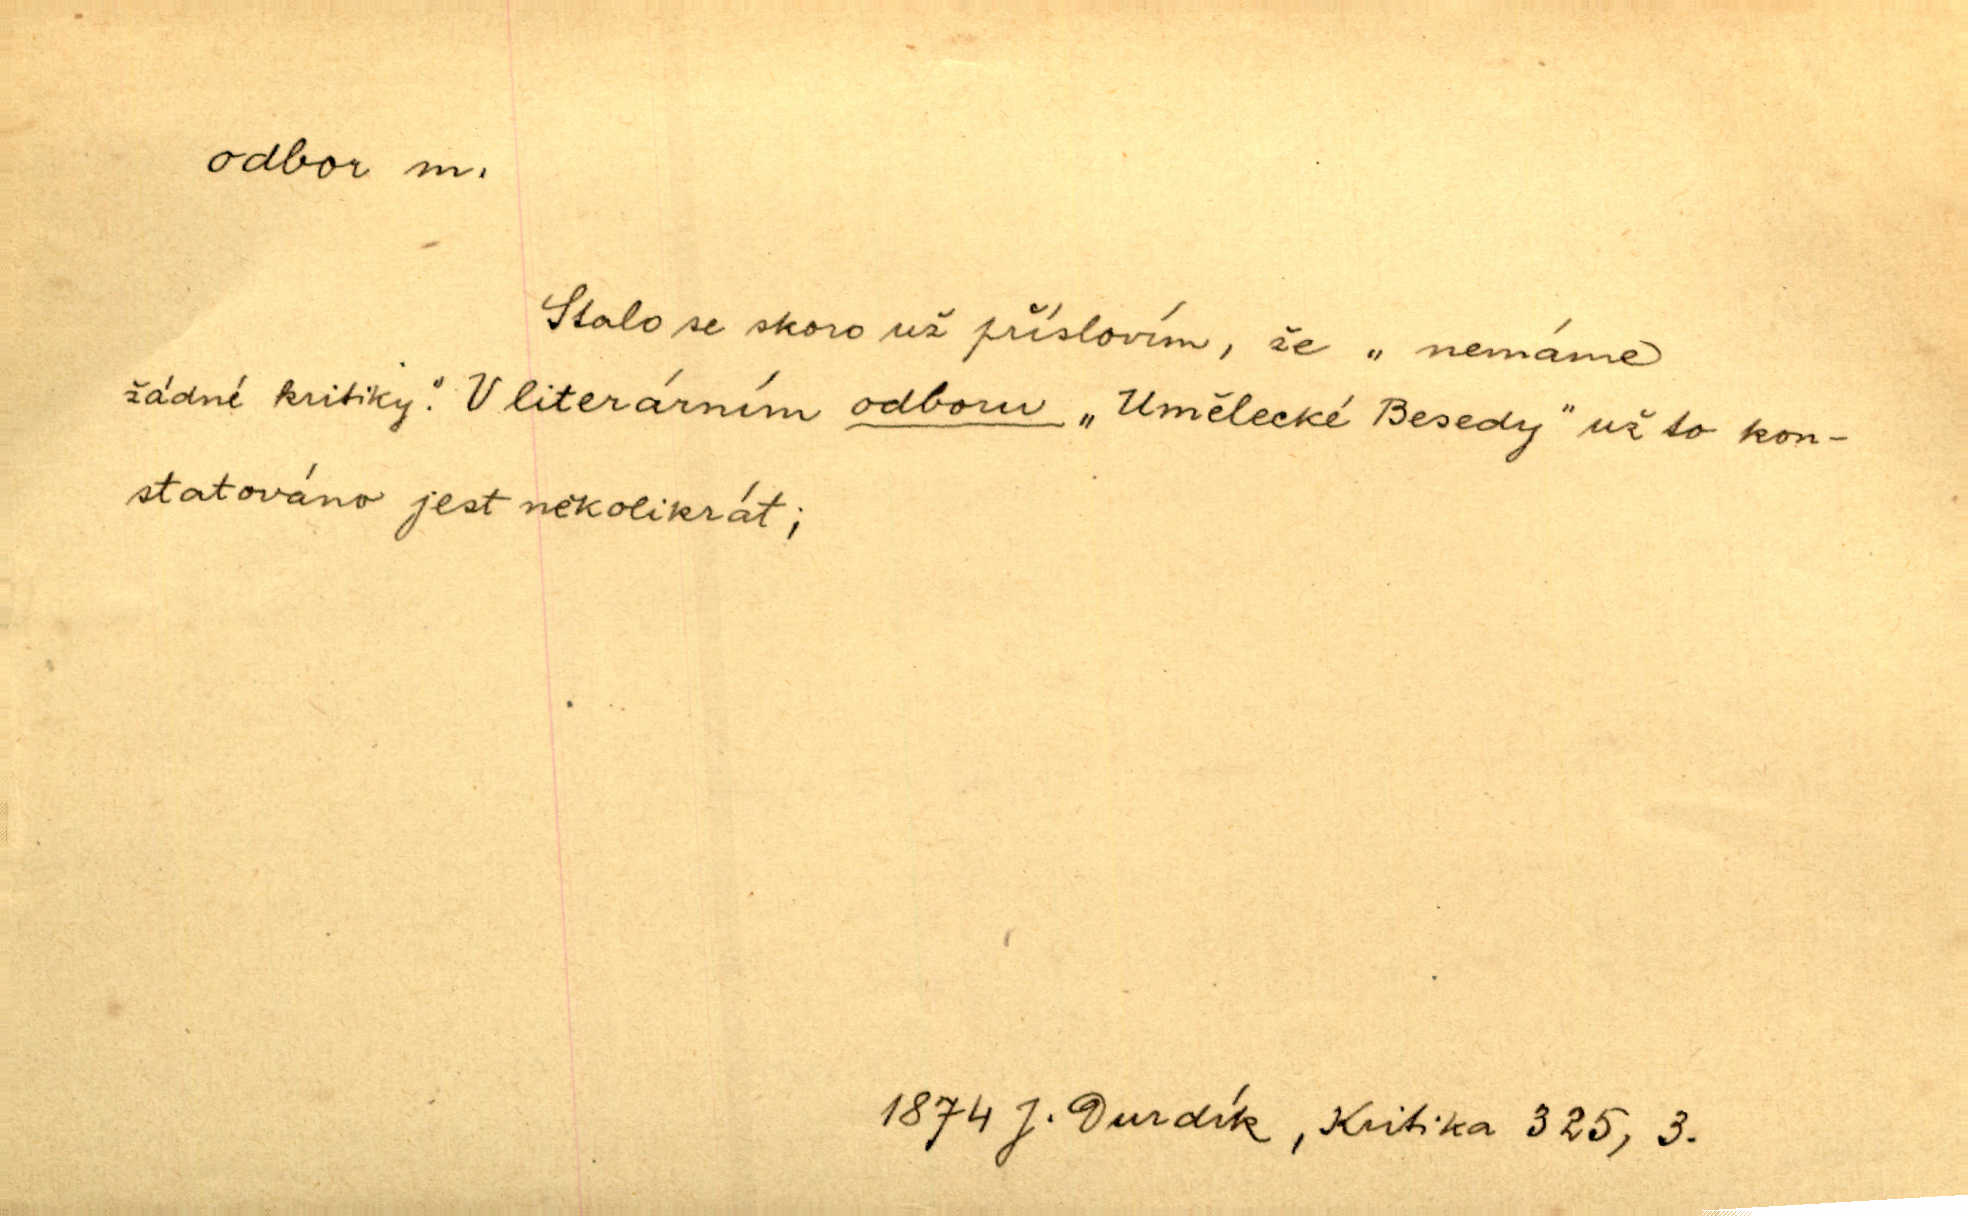 odbor m.
Stalo se skoro už příslovím, že „nemáme
žádné kritiky“. V literárním odboru „Umělecké Besedy“ už to kon-
statováno jest několikrát;
1874 J. Durdík, Kritika 325, 3.